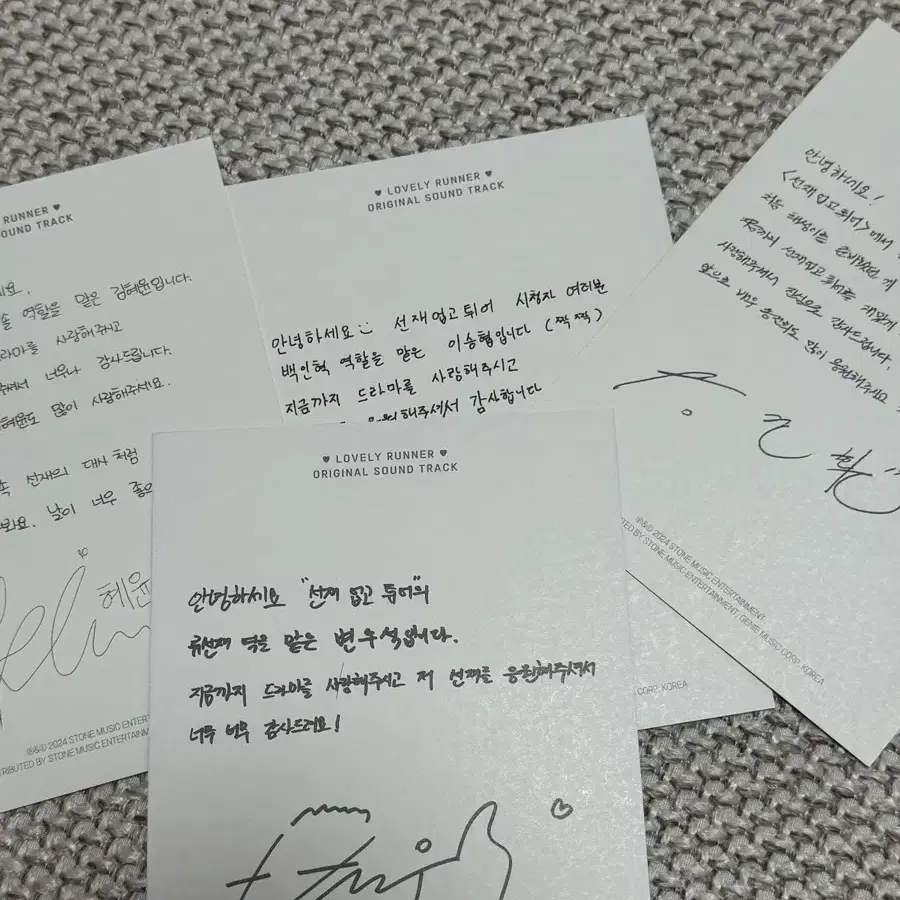 RUNNER ♥
OUND TRACK
요.
솔 역할을 맡은 김혜윤입니다.
라마를 사랑해주시고
주셔서 너무나 감사드립니다.
혜윤도 많이 사랑해주세요.
속 선재의 대사 처럼
봐요. 날이 너무 좋으
혜윤
℗&© 2024 STONE MUSIC ENTERT
TRIBUTED BY STONE MUSIC ENTERTAINM
♥ LOVELY RUNNER ♥
ORIGINAL SOUND TRACK
안녕하세요 선재 업고 튀어 시청자 여러분
백인혁 역할을 맡은 이승협입니다 (짝짝)
지금까지 드라마를 사랑해주시고
해주셔서 감사합니다
CORP. KOREA
안녕하세요!
<선재 업고 튀어>에서
사랑해주셔서 진심으로 감사드립니다.
앞으로 배우 송건희도 많이 응원해주세요
℗&© 2024 STONE MUSIC ENTERTAINMENT.
TED BY STONE MUSIC ENTERTAINMENT, GENIE MUSIC CORP. KOREA
♥ LOVELY RUNNER ♥
ORIGINAL SOUND TRACK
안녕하시요 "선재 업고 튀어"의
류선재 역을 맡은 변우석입니다.
지금까지 드라마를 사랑해주시고 저 선재를 응원해주셔서
너무 너무 감사드려요!